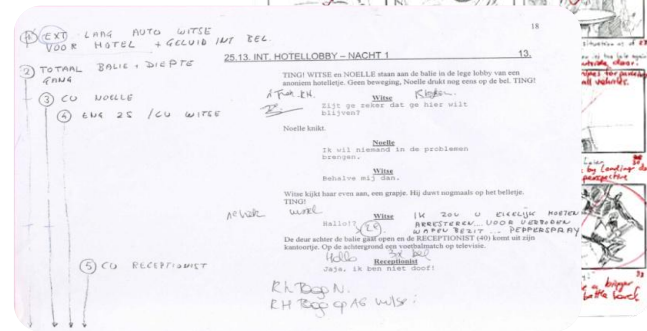 18
① EXT LAAG AUTO WITSE
VOOR HOTEL + GELUID INT BEL.
25.13. INT. HOTELLOBBY – NACHT 1 13.
② TOTAAL BALIE + DIEPTE
GANG
TING! WITSE en NOELLE staan aan de balie in de lege lobby van een
anoniem hotelletje. Geen beweging, Noelle drukt nog eens op de bel. TING!
③ CU NOELLE
Witse
④ ENG 25 /CU WITSE
Zijt ge zeker dat ge hier wilt
blijven?
Noelle knikt.
Noelle
Ik wil niemand in de problemen
brengen.
Witse
Behalve mij dan.
Witse kijkt haar even aan, een grapje. Hij duwt nogmaals op het belletje.
TING!
Witse
Hallo!?
IK ZOU U EIGELIJK MOETEN
ARRESTEREN... VOOR VERBODEN
WAPEN BEZIT... PEPPERSPRAY
De deur achter de balie gaat open en de RECEPTIONIST (40) komt uit zijn
kantoortje. Op de achtergrond een voetbalmatch op televisie.
Hallo 3x bel
⑤ CU RECEPTIONIST
Receptionist
Jaja, ik ben niet doof!
perspective
a bigger